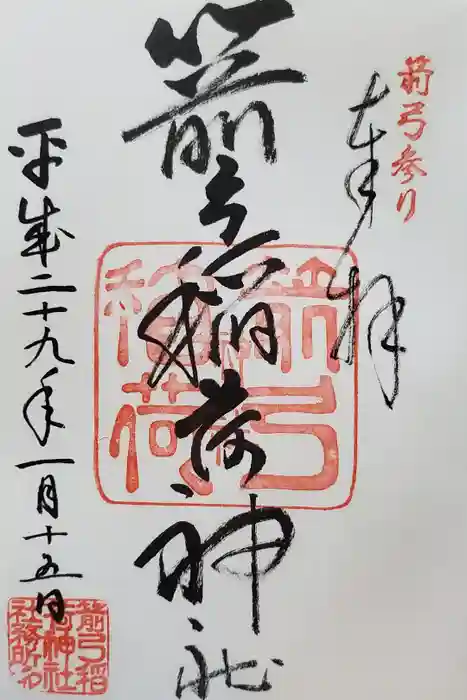 箭弓参り
奉拝
箭弓稲荷神社
箭弓稲荷
平成二十九年一月十五日
箭弓稲荷神社社務所印